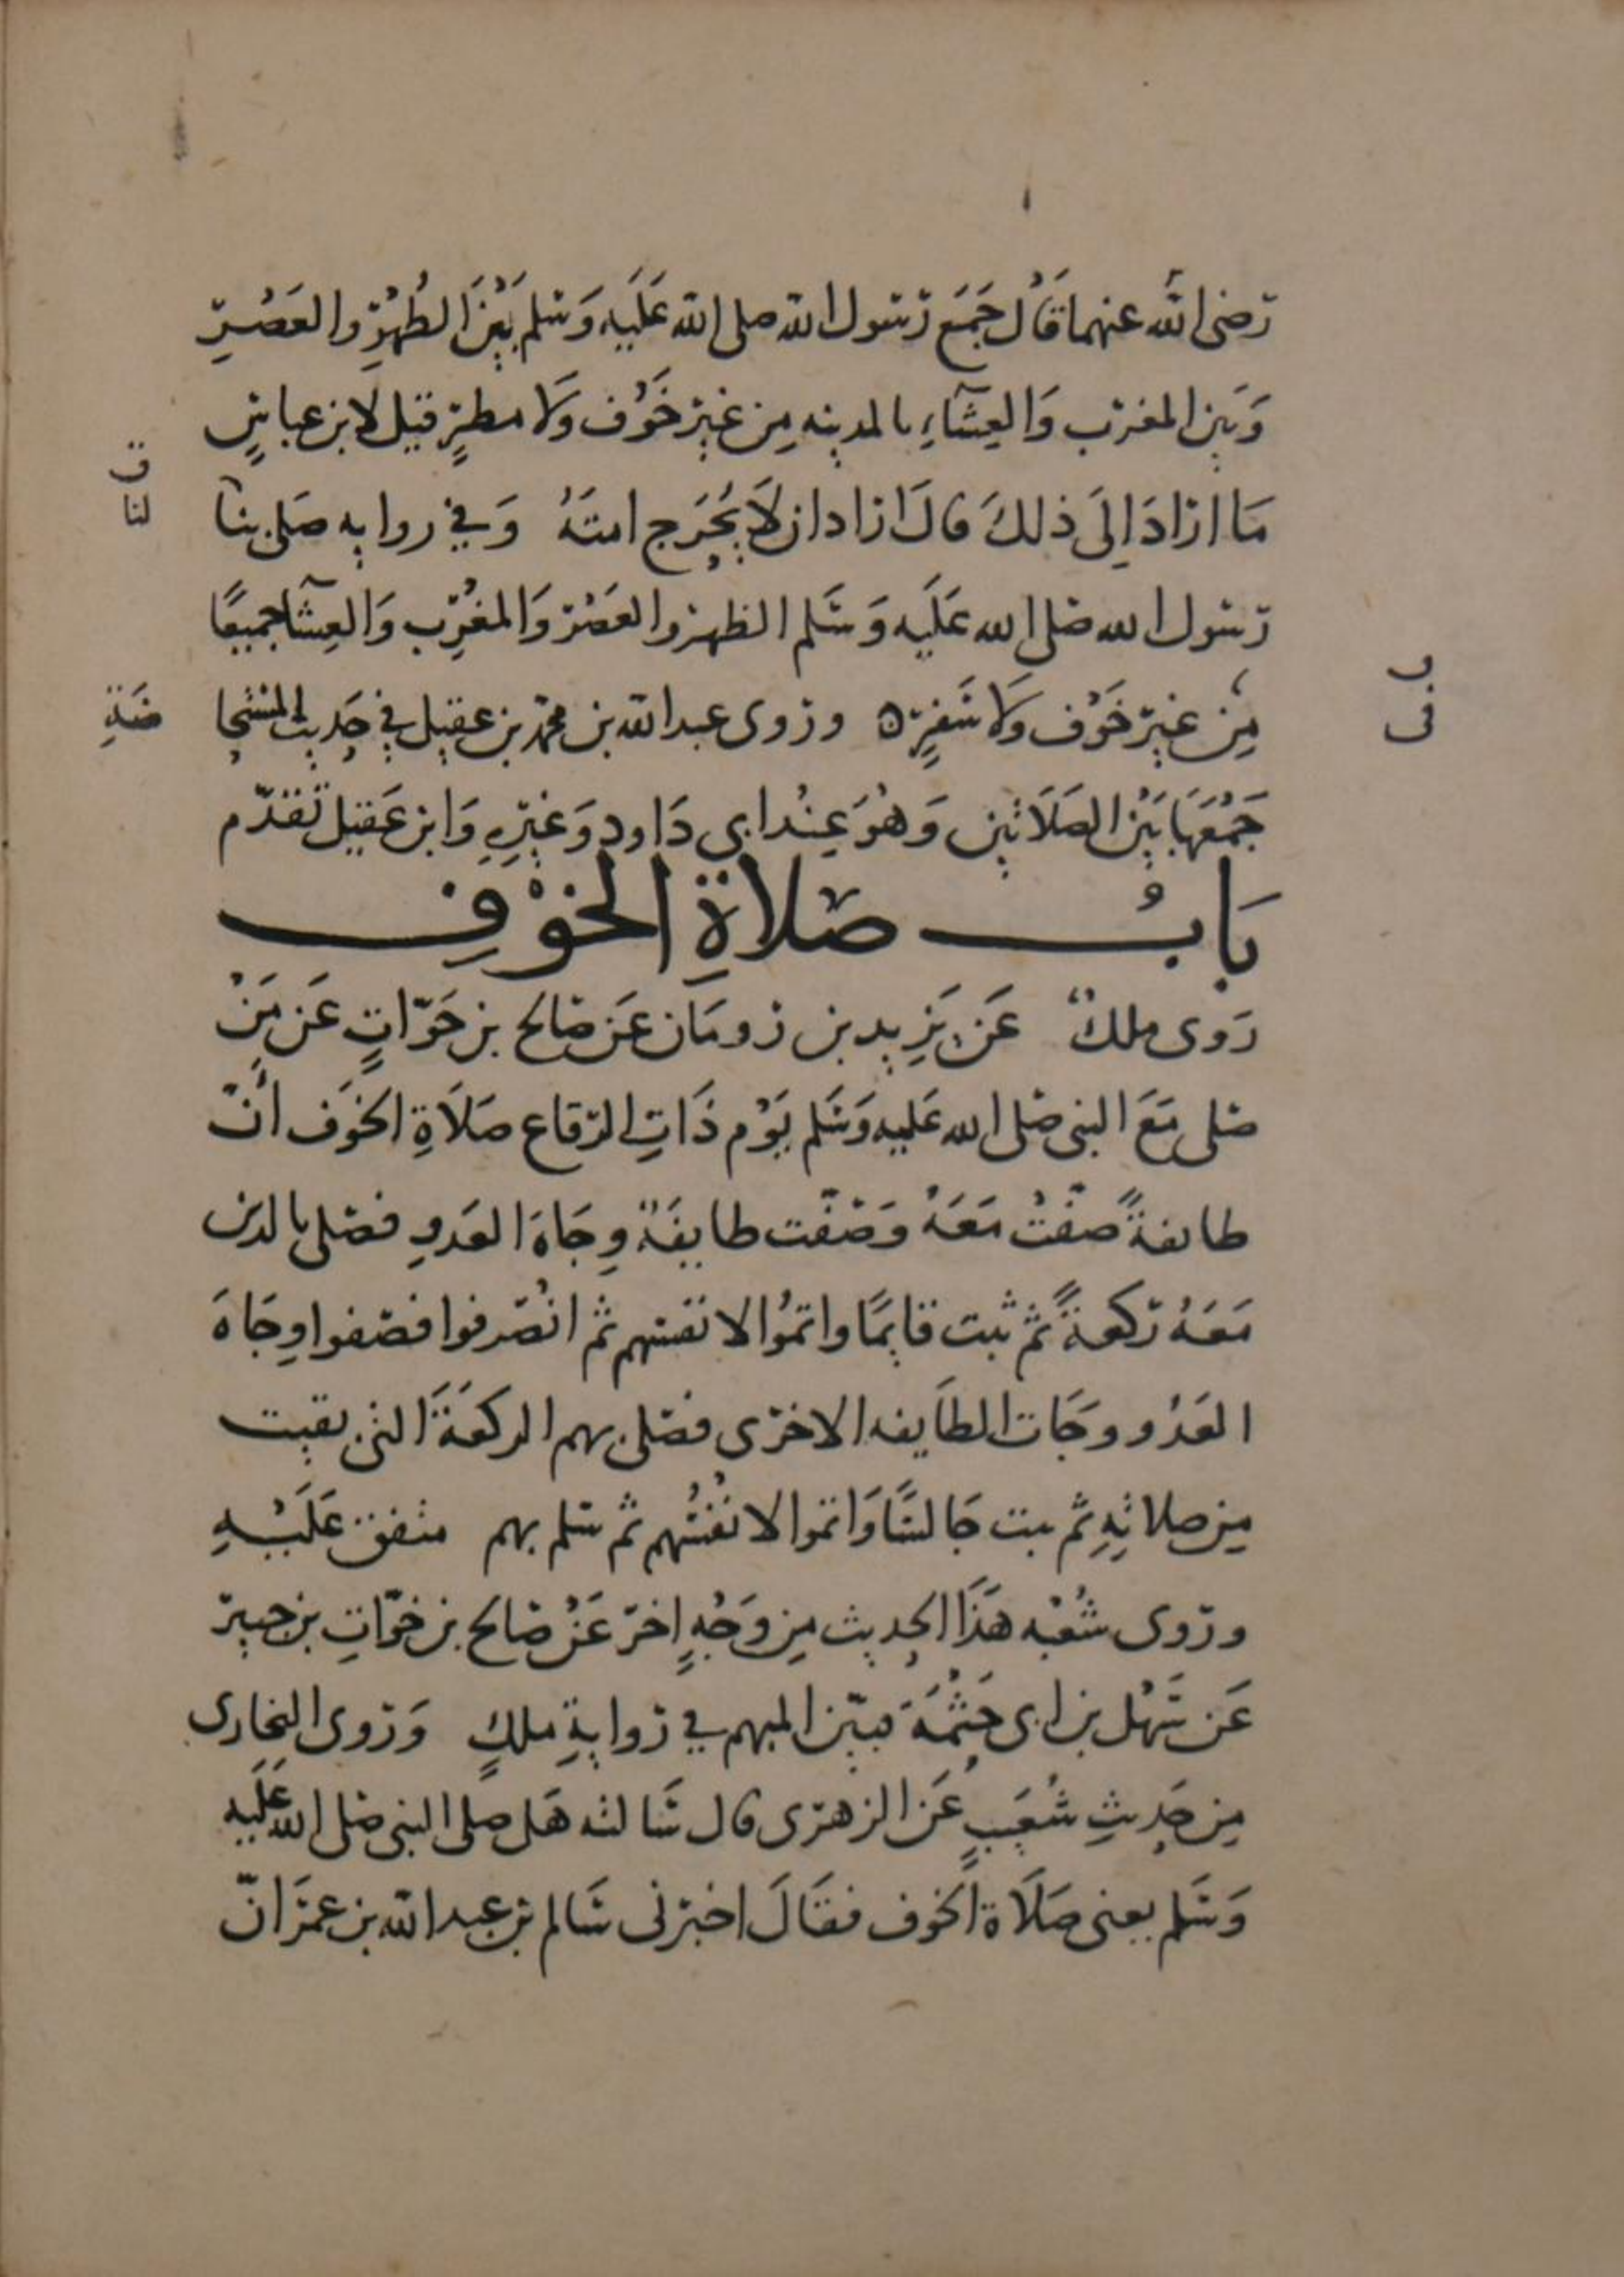 رَضى الله عنهما قَال جَمَعَ رَسُول الله صلى الله عَلَيه وَسَلم بَيْنَ الظُهْرِ والعَصْرِ
وَبَين المغرب وَالعِشَآءِ بالمدينه مِن غير خَوْف وَلا مطرٍ قيل لابن عباسٍ
مَا ارَادَ اِلَى ذلكَ قالَ ارَاد ان لَا يُحْرَج امتَهُ وَفي روايه صَلى بنا
رَسُول الله صَلى الله عَلَيه وَسَلم الظهر والعَصْر وَالمغْرِب وَالعِشآ جميعًا
مِن غير خَوْف وَلا سَفرٍ ه وروى عبد الله بن محمّد بن عقيل في حَديث المستحا
ضَةِ
جَمْعَهَا بَيْنَ الصَلَاتين وَهُوَ عِنْد ابى دَاود وَغيْرِهِ وَابن عَقيل تَقَدّم
بَابُ صَلاةِ الخَوْفِ
رَوى ملكٌ عَن يَزِيد بن رومَان عَن صَالح بن خَوّاتٍ عَن مَنْ
صَلى مَعَ النبى صَلى الله عَليه وَسَلم يَوْم ذَاتِ الرّقاع صَلَاةِ الخوَف أنّ
طايفةً صفّتْ مَعَهُ وَصَفّت طايفَةٌ وِجَاهَ العَدوِ فصَلى بالذين
مَعَهُ رَكعةً ثم ثبت قايمًا واتمُوا لانفسهم ثم انْصَرفوا فصَفوا وِجَاهَ
العَدُو وجَات الطَايفه الاخرَى فصَلى بهم الركعَةَ التي بقيت
مِن صلاتِهِ ثم ثبت جَالسًا وَاتموا لانفُسهم ثم سَلم بهم متفق عَلَيْهِ
ورَوى شُعْبه هَذَا الحديث مِن وَجْهٍ اخرَ عَنْ صَالح بن خَوّاتِ بن جبير
عَن سَهْل بن ابى حَثْمَة فبيّن المبهم في رَوايةِ ملكٍ وَرَوى البُخَارى
مِن حَديثِ شُعَيبٍ عَن الزهرى قال سَالته هَل صلى النبى صَلى الله عَلَيه
وَسَلم يعنى صَلَاة الخوف فقَالَ اخبرنى سَالم بن عبد الله بن عمرَ انّ